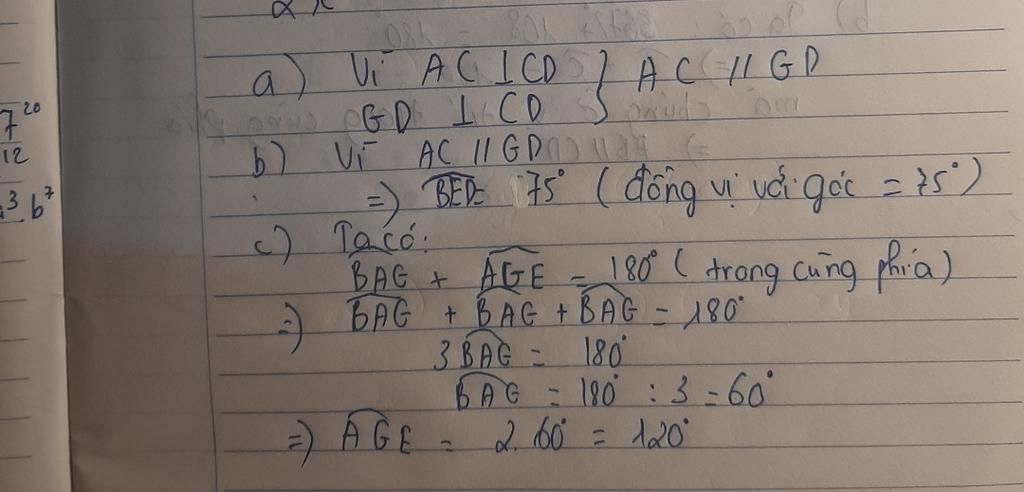 a) Vì AC ⊥ CD } AC // GD
GD ⊥ CD
b) Vì AC // GD
=> BED = 75° (đồng vị với góc = 75°)
c) Ta có:
BAG + AGE = 180° (trong cùng phía)
=) BAG + BAG + BAG = 180°
3 BAG = 180°
BAG = 180° : 3 = 60°
=) AGE = 2.60° = 120°
7 20
12
3 b 7